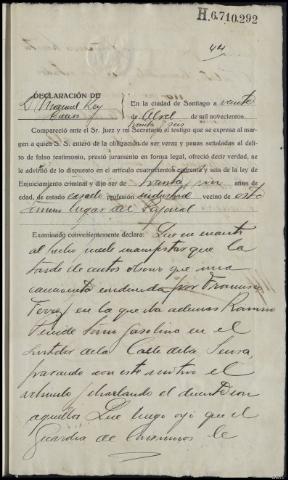 H.6.710.292
44
DECLARACIÓN DE
D. Manuel Rey
En la ciudad de Santiago a veinte
y de Abril de mil novecientos
treinta y seis
Compareció ante el Sr. Juez y mi Secretario el testigo que se expresa al margen
a quien S. S. enteró de la obligación de ser veraz y penas señaladas al delito
de falso testimonio, prestó juramento en forma legal, ofreció decir verdad, se
le advirtió de lo dispuesto en el artículo cuatrocientos cuarenta y seis de la ley de
Enjuiciamiento criminal y dijo ser de treinta años de
edad, de estado casado profesión industrial vecino de esta
lugar del
Examinado convenientemente declara: Que en cuanto
al hecho puede manifestar que la
tarde de autos observó que una
camioneta conducida por Francisco
Ferro en la que iba además Ramiro
gasolina en el
surtidor de la Calle de la Senra,
parando con este motivo el
vehículo y charlando el dicente con
aquellos Que luego oyó que el
Guardia de Consumos le